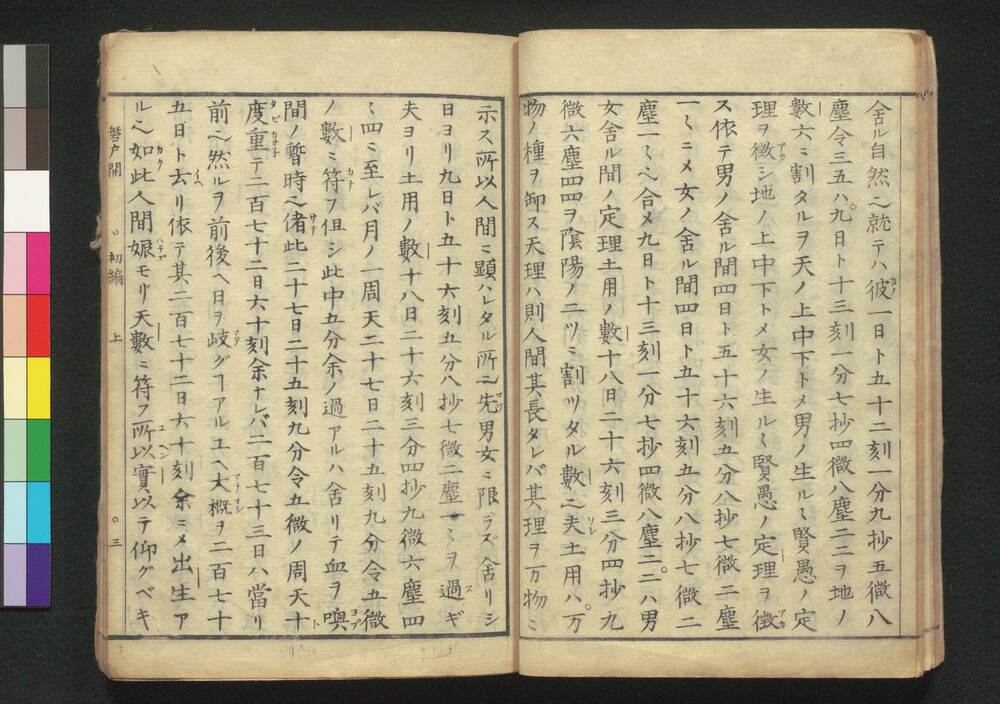 舍ル自然ㇸ就テハ彼一日ト五十二刻一分九抄五微八
塵令三五ハ九日ト十三刻一分七抄四微八塵二二ヲ地ノ
數六ミ割タルヲ天ノ上中下トメ男ノ生ルヽ賢愚ノ定
理ヲ徴シ地ノ上中下トメ女ノ生ルヽ賢愚ノ定理ヲ徴
ス依テ男ノ舍ル間四日ト五十六刻五分八抄七微二塵
一ヽミメ女ノ舍ル間四日ト五十六刻五分八抄七微二
塵一ヽㇸ合メ九日ト十三刻一分七抄四微八塵二二ハ男
女舍ル間ノ定理土用ノ數十八日二十六刻三分四抄九
微六塵四四ヲ陰陽ノ二ツミ割ツタル數ㇸ夫土用ハ万
物ノ種ヲ卸ス天理ハ則人間其長タレバ其理ヲ万物ミ
示ス所以人間ミ顯ハレタル所ㇸ先男女ミ限ラズ舍リシ
日ヨリ九日ト五十六刻五分八抄七微二塵一ヽヲ過ギ
夫ヨリ土用ノ數十八日二十六刻三分四抄九微六塵四
ミ四ミ至レバ月ノ一周天二十七日二十五刻九分令五微
ノ數ミ符フ但シ此中五分余ノ過アルハ舍リテ血ヲ喚
間ノ暫時ㇸ偖此二十七日二十五刻九分令五微ノ周天十
度重テ二百七十二日六十刻余ナレバ二百七十三日ハ當リ
前ㇸ然ルヲ前後ヘ日ヲ岐グヿアルユヘ大概ヲ二百七十
五日ト云リ依テ其二百七十二日六十刻余ミメ出生ア
ルㇸ如此人間娠モリ天數ミ符フ所以實以テ仰グベキ
磐戸開 ○初編 上 ○三